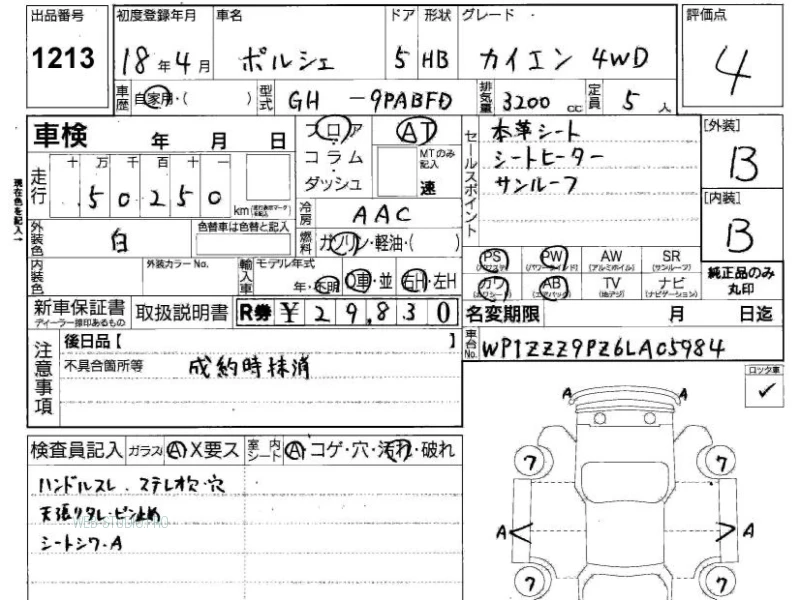 出品番号 初度登録年月 車名 ドア 形状 グレード 評価点
1213 18年4月 ポルシェ 5 HB カイエン 4WD 4
車歴 自家用・( ) 型式 GH -9PABFD 排気量 3200 cc 定員 5 人
車検 年 月 日
フロア
コラム・
ダッシュ
AT
MTのみ記入
速
セールスポイント
本革シート
シートヒーター
サンルーフ
[外装]
B
[内装]
B
現在色を記入→
走行 十 万 千 百 十 一
50250 km
冷房 AAC
外装色 白 色替車は色替と記入
燃料 ガソリン・軽油・( )
内装色 外装カラーNo. 輸入車 モデル年式
年・不明 D車・並 右H・左H
PS PW AW SR
(パワステ) (パワーウインド) (アルミホイル) (サンルーフ)
カワ AB TV ナビ
(カワシート) (エアバック) (地デジ) (ナビゲーション)
純正品のみ
丸印
新車保証書 取扱説明書 R券 ¥29,830
ディーラー捺印あるもの
名変期限 月 日迄
車台No. WP1ZZZ9PZ6LA05984
注意事項
後日品【 】
不具合箇所等 成約時抹消
ロック車
✓
検査員記入 ガラス A X要ス 室内シート A・コゲ・穴・汚れ・破れ
ハンドルスレ . ステレオ穴・穴
天張りタレ・ピン止め
WEB STUDIO PRO
シートシワ・A
A A
7 7
A A
7 7